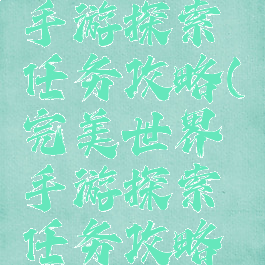 手游探索
任务攻略(
完美世界
手游探索
任务攻略